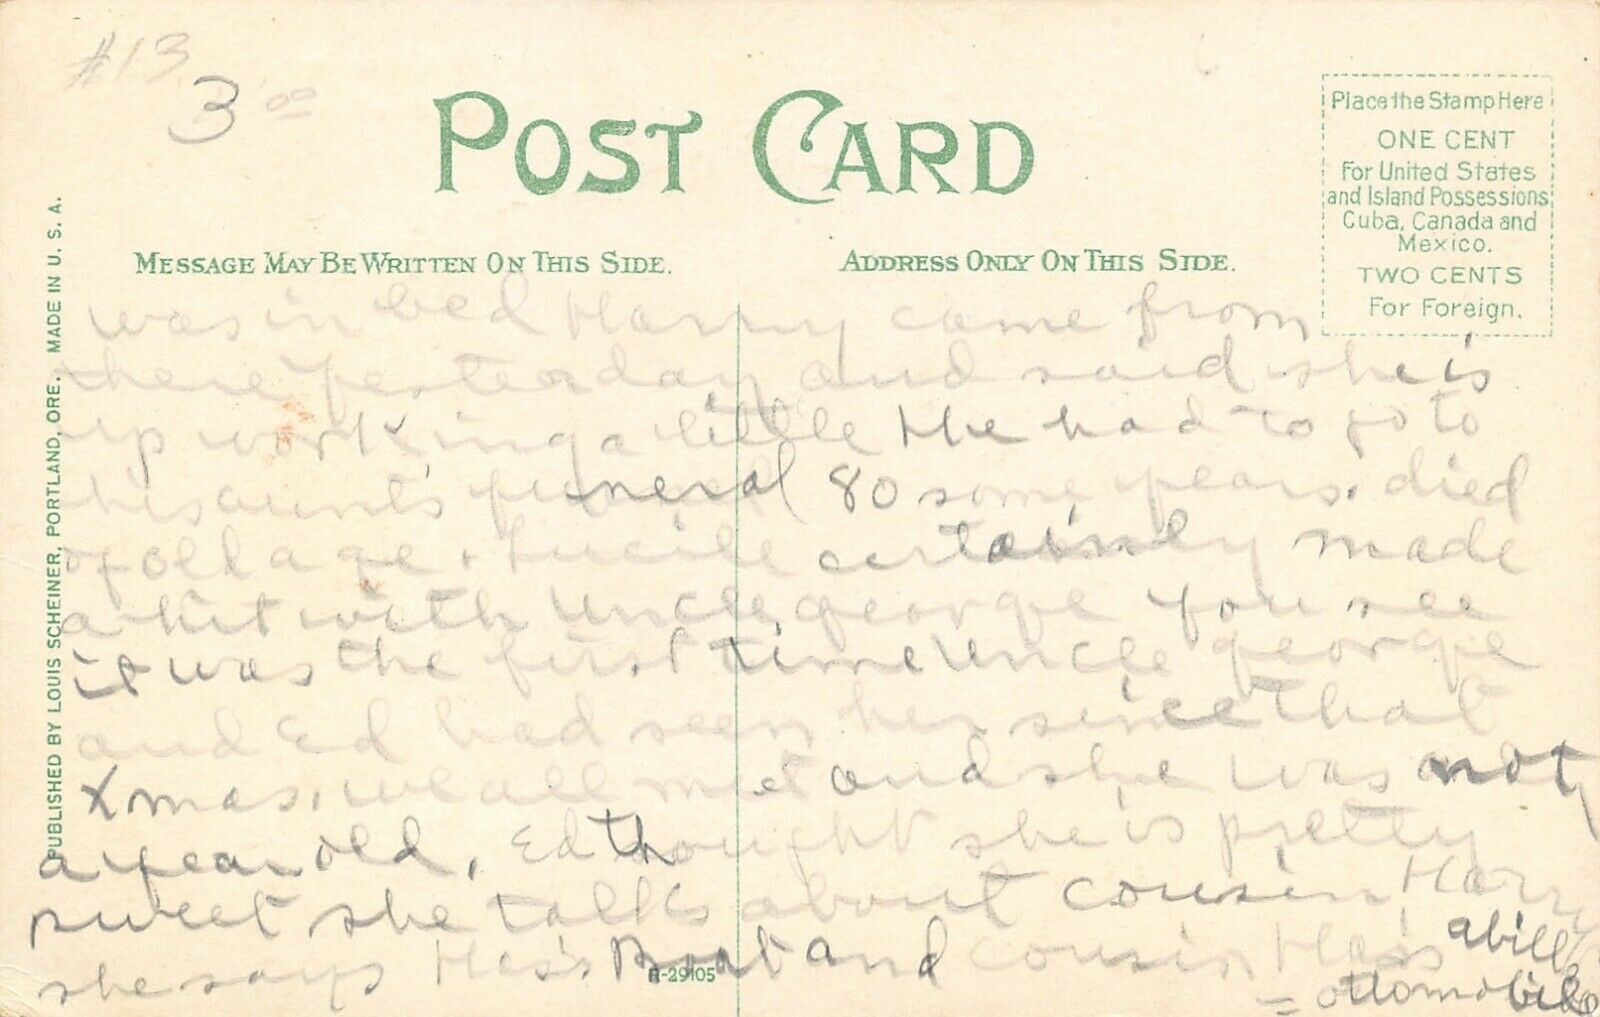 #13
3 00
POST CARD
Place the Stamp Here
ONE CENT
For United States
and Island Possessions
Cuba, Canada and
Mexico.
TWO CENTS
For Foreign.
MESSAGE MAY BE WRITTEN ON THIS SIDE.
ADDRESS ONLY ON THIS SIDE.
PUBLISHED BY LOUIS SCHEINER, PORTLAND, ORE. MADE IN U. S. A.
was in bed Harry came from
there yesterday and said she is
up working a little He had to go to
his aunt's funeral 80 some years. died
of old age. Lucile certainly made
a hit with Uncle george you see
it was the first time Uncle george
and Ed had seen her since that
Xmas. we all met and she was not
a year old. Ed thought she is pretty
sweet she talks about cousin Harry
she says Ha's Boat and cousin Ha's abill
= ottomobile
H-29105